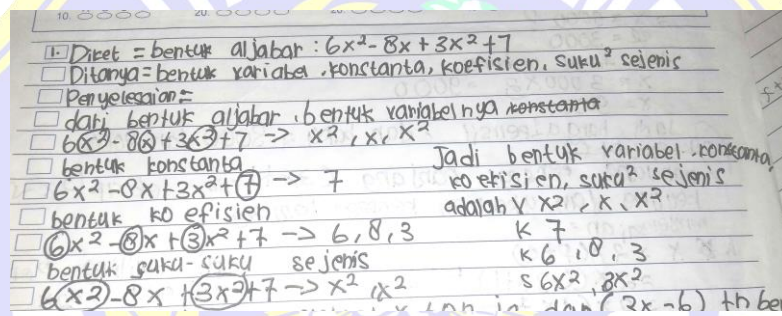 10.
20.
1. Diket = bentuk aljabar : 6x² - 8x + 3x² + 7
Ditanya = bentuk variabel, konstanta, koefisien, suku² sejenis
Penyelesaian =
dari bentuk aljabar, bentuk variabelnya konstanta
6x² - 8x + 3x² + 7 -> x², x, x²
bentuk konstanta
6x² - 8x + 3x² + 7 -> 7
bentuk ko efisien
6x² - 8x + 3x² + 7 -> 6, 8, 3
bentuk suku-suku sejenis
6x2 - 8x + 3x² + 7 -> x², x²
Jadi bentuk variabel, konstanta,
koefisien, suku² sejenis
adalah V x2, x, x²
K 7
K 6, 8, 3
S 6x², 3x²
(3x - 6)